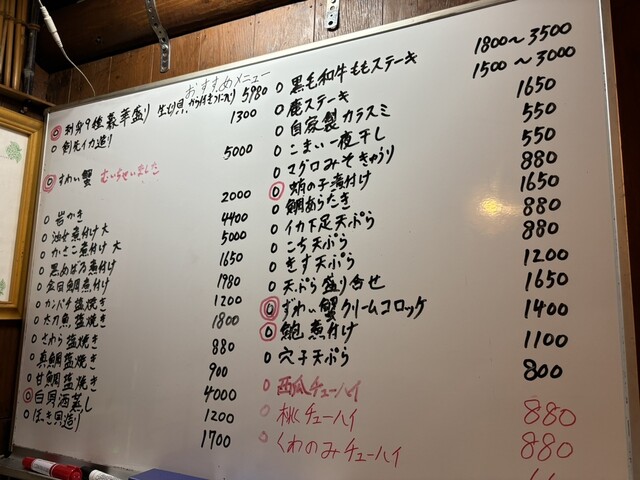 おすすめメニュー
◎ 刺身9種豪華盛り 生切貝 5980
○ 剣先イカ造り 1300
◎ ずわい蟹 むいちゃいました 5000
○ 岩かき 2000
○ 油女煮付け大 4400
○ かさご煮付け 大 5000
○ 黒めばる煮付け 1650
○ 金目鯛煮付け 1980
○ カンパチ塩焼き 1200
○ 太刀魚塩焼き 1800
○ さわら塩焼き 880
○ 真鯛塩焼き 900
○ 甘鯛塩焼き 4000
◎ 白貝酒蒸し 1200
○ ほっき貝造り 1700
○ 黒毛和牛ももステーキ 1800〜3500
○ 鹿ステーキ 1500〜3000
○ 自家製カラスミ 1650
○ こまい一夜干し 550
○ マグロみそきゅうり 550
◎ 蛸の子煮付け 880
○ 鯛あらだき 1650
○ イカ下足天ぷら 880
○ こち天ぷら 880
○ きす天ぷら 1200
○ 天ぷら盛り合せ 1650
◎ ずわい蟹クリームコロッケ 1400
◎ 鮑煮付け 1100
○ 穴子天ぷら 800
○ 西瓜チューハイ 880
○ 桃チューハイ 880
○ くわのみチューハイ